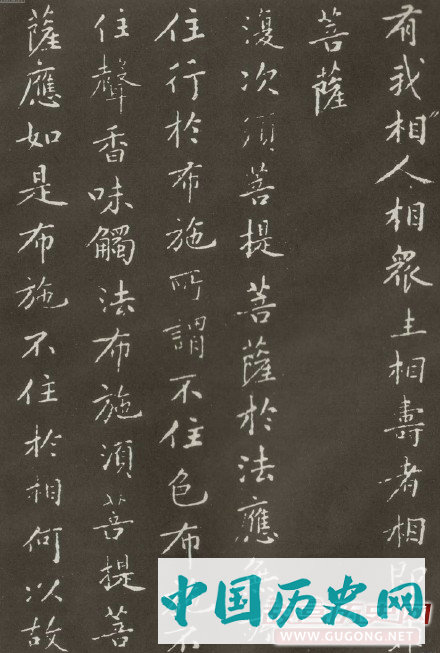 有我相人相衆生相壽者相即非
菩薩
復次須菩提菩薩於法應無所
住行於布施所謂不住色布施不
住聲香味觸法布施須菩提菩
薩應如是布施不住於相何以故
中国历史网
WWW.GUGONG.NET